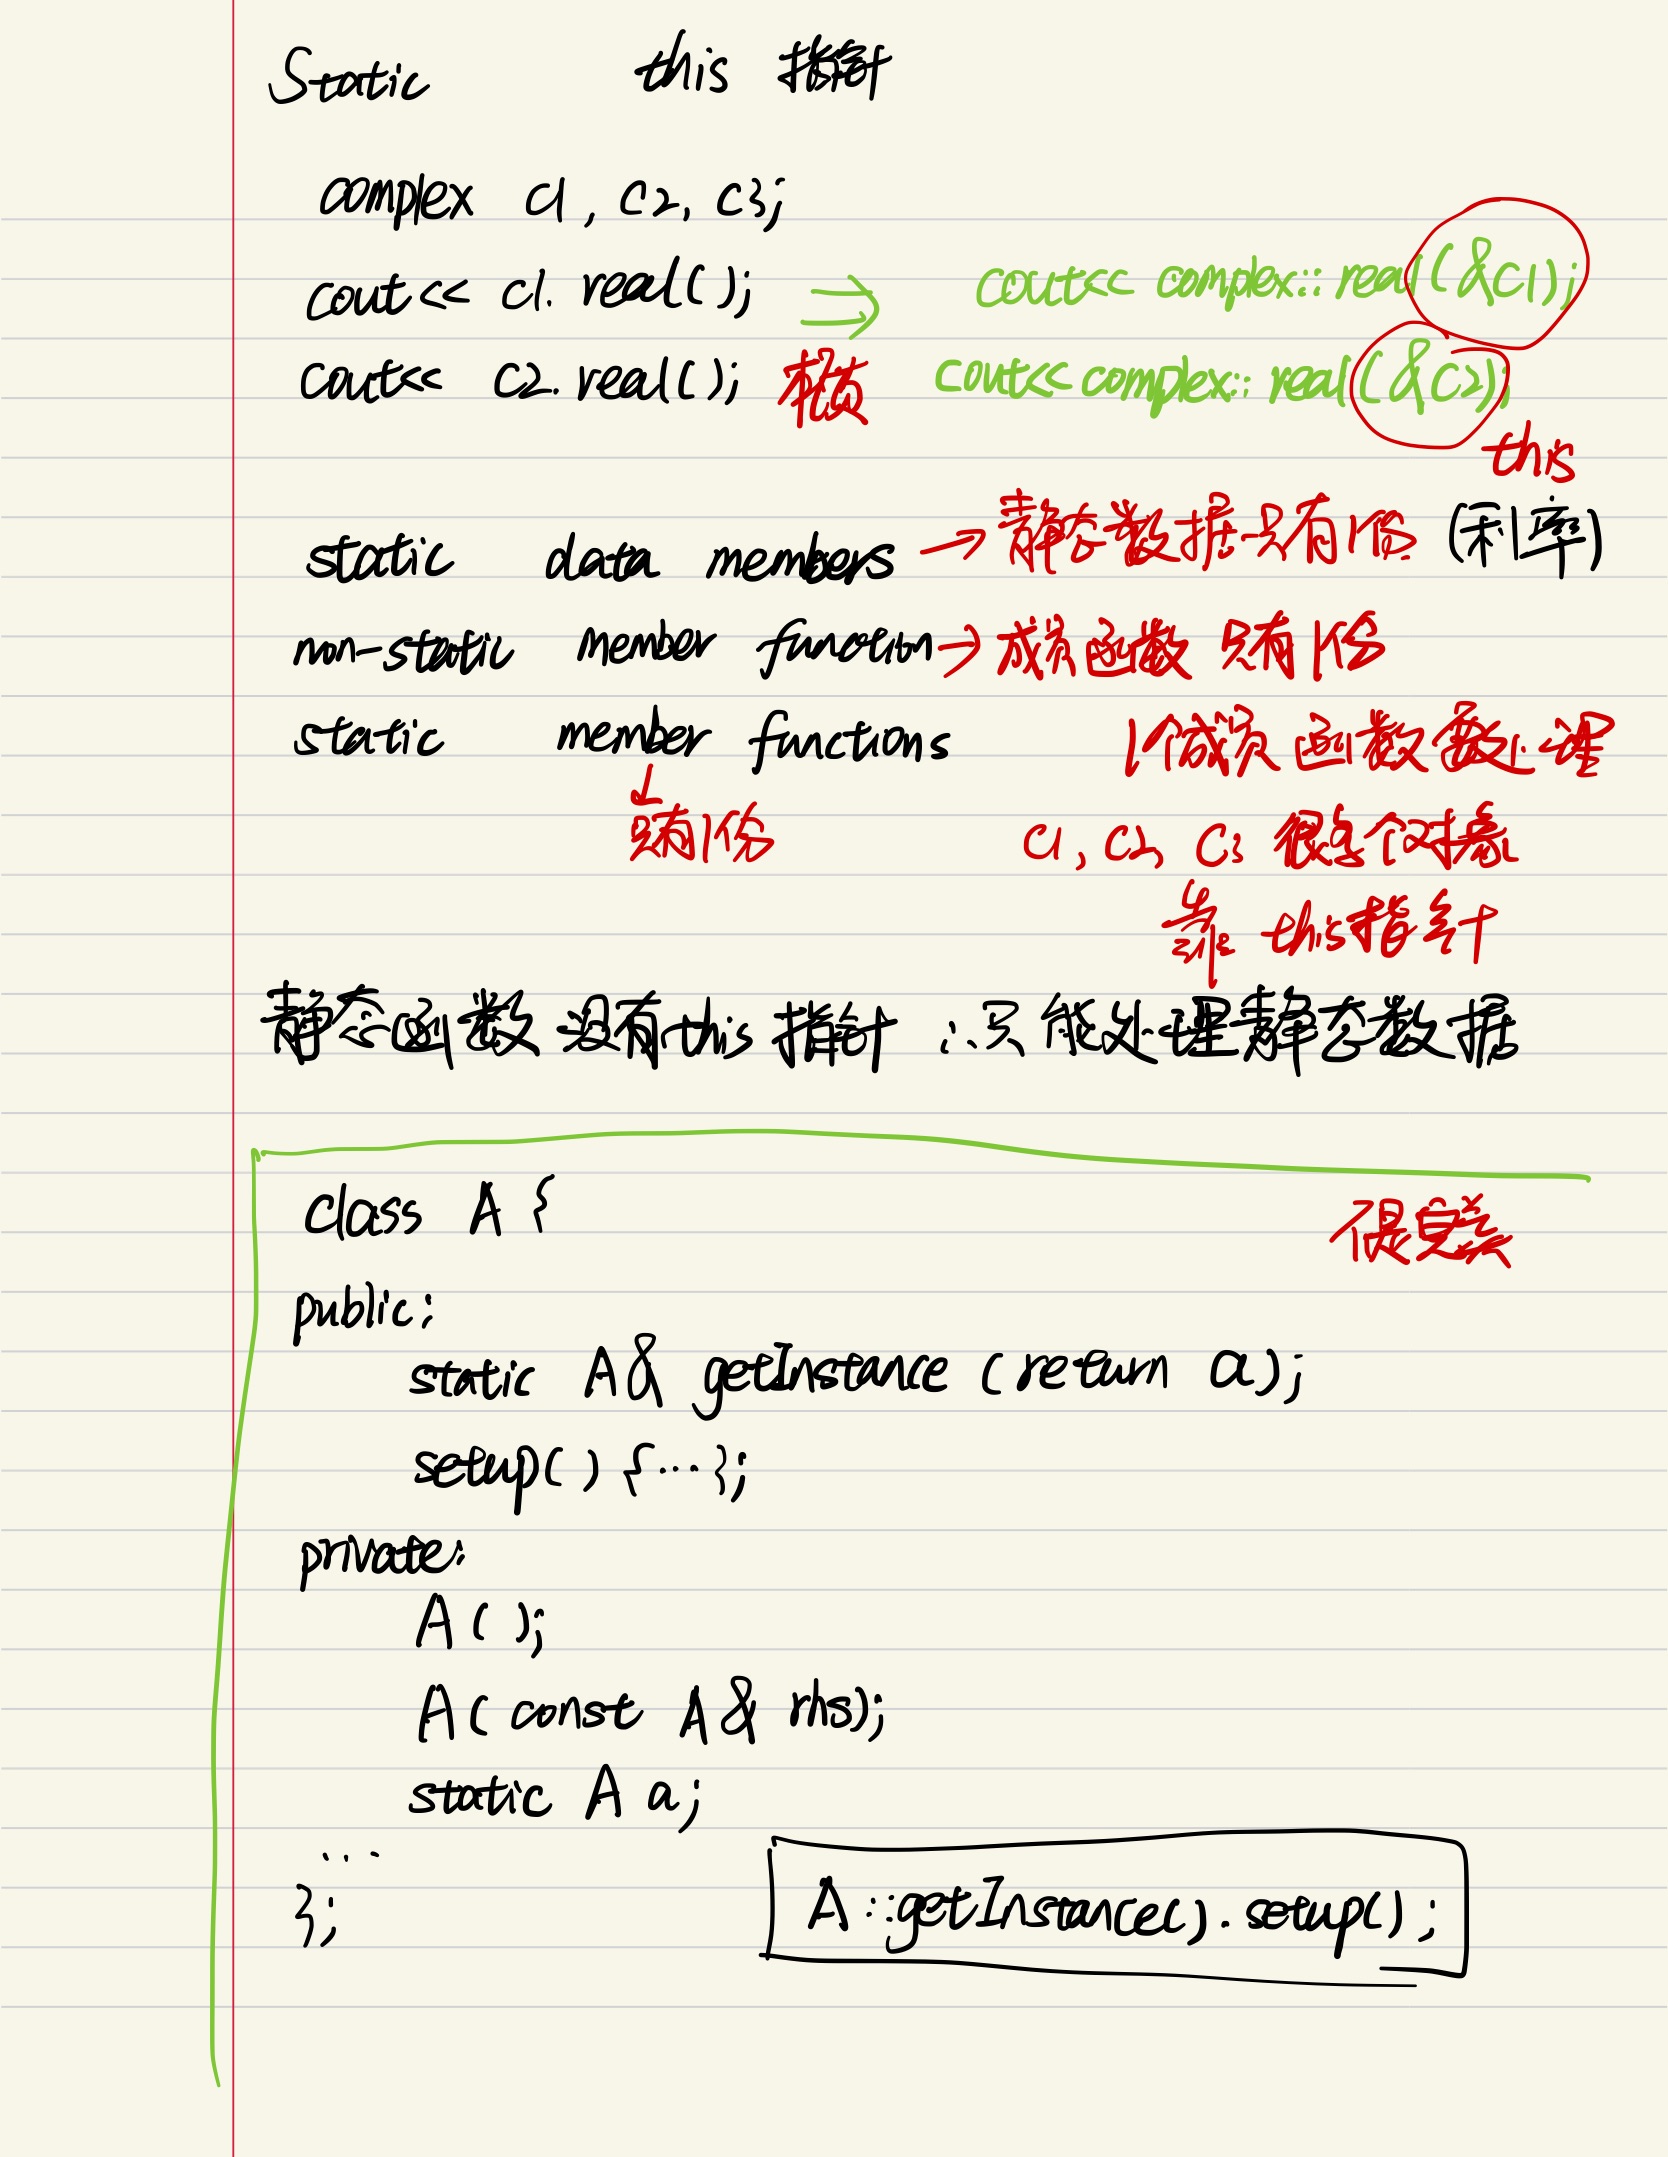 Static this 指针
complex c1, c2, c3;
cout << c1.real(); ⇒ cout<< complex::real(&c1);
cout<< c2.real(); 本质 cout<< complex::real(&c2);
this
static data members → 静态数据只有1份 (利率)
non-static member function → 成员函数 只有1份
static member functions 1个成员函数要处理
↓
只有1份 c1, c2, c3 很多个对象
靠 this指针
静态函数没有this指针 ∴只能处理静态数据
class A {
public:
static A& getInstance (return a);
setup() {...};
private:
A( );
A( const A& rhs);
static A a;
...
};
A::getInstance().setup();